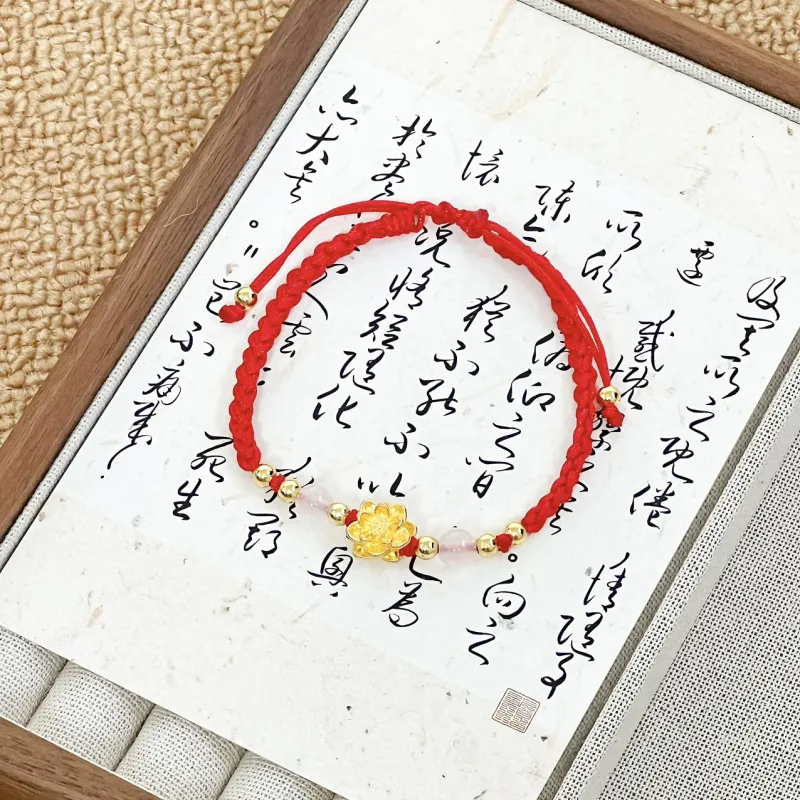 及其所之既倦情随事
遷感慨係之矣。向之
所欣俛仰之間已為
陳迹猶不能不以興
懷況脩短随化終期
於盡人云：死生
亦大矣。"豈不痛哉！